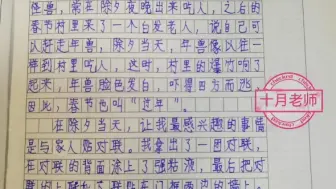 怪兽，常在除夕夜晚出来吃人，之后的
春节村里来了一个白发老人，说自己可
以赶走年兽，除夕当天，年兽像以往一
样到村里吃人，这时，村里的爆竹响了
起来，年兽脸色发白，吓得四方而逃
因此，春节也叫“过年”。
在除夕当天，让我最感兴趣的事情
是与家人贴对联。我拿出了一团对联，
在对联的背面涂上了强粘液，最后把对
十月老师